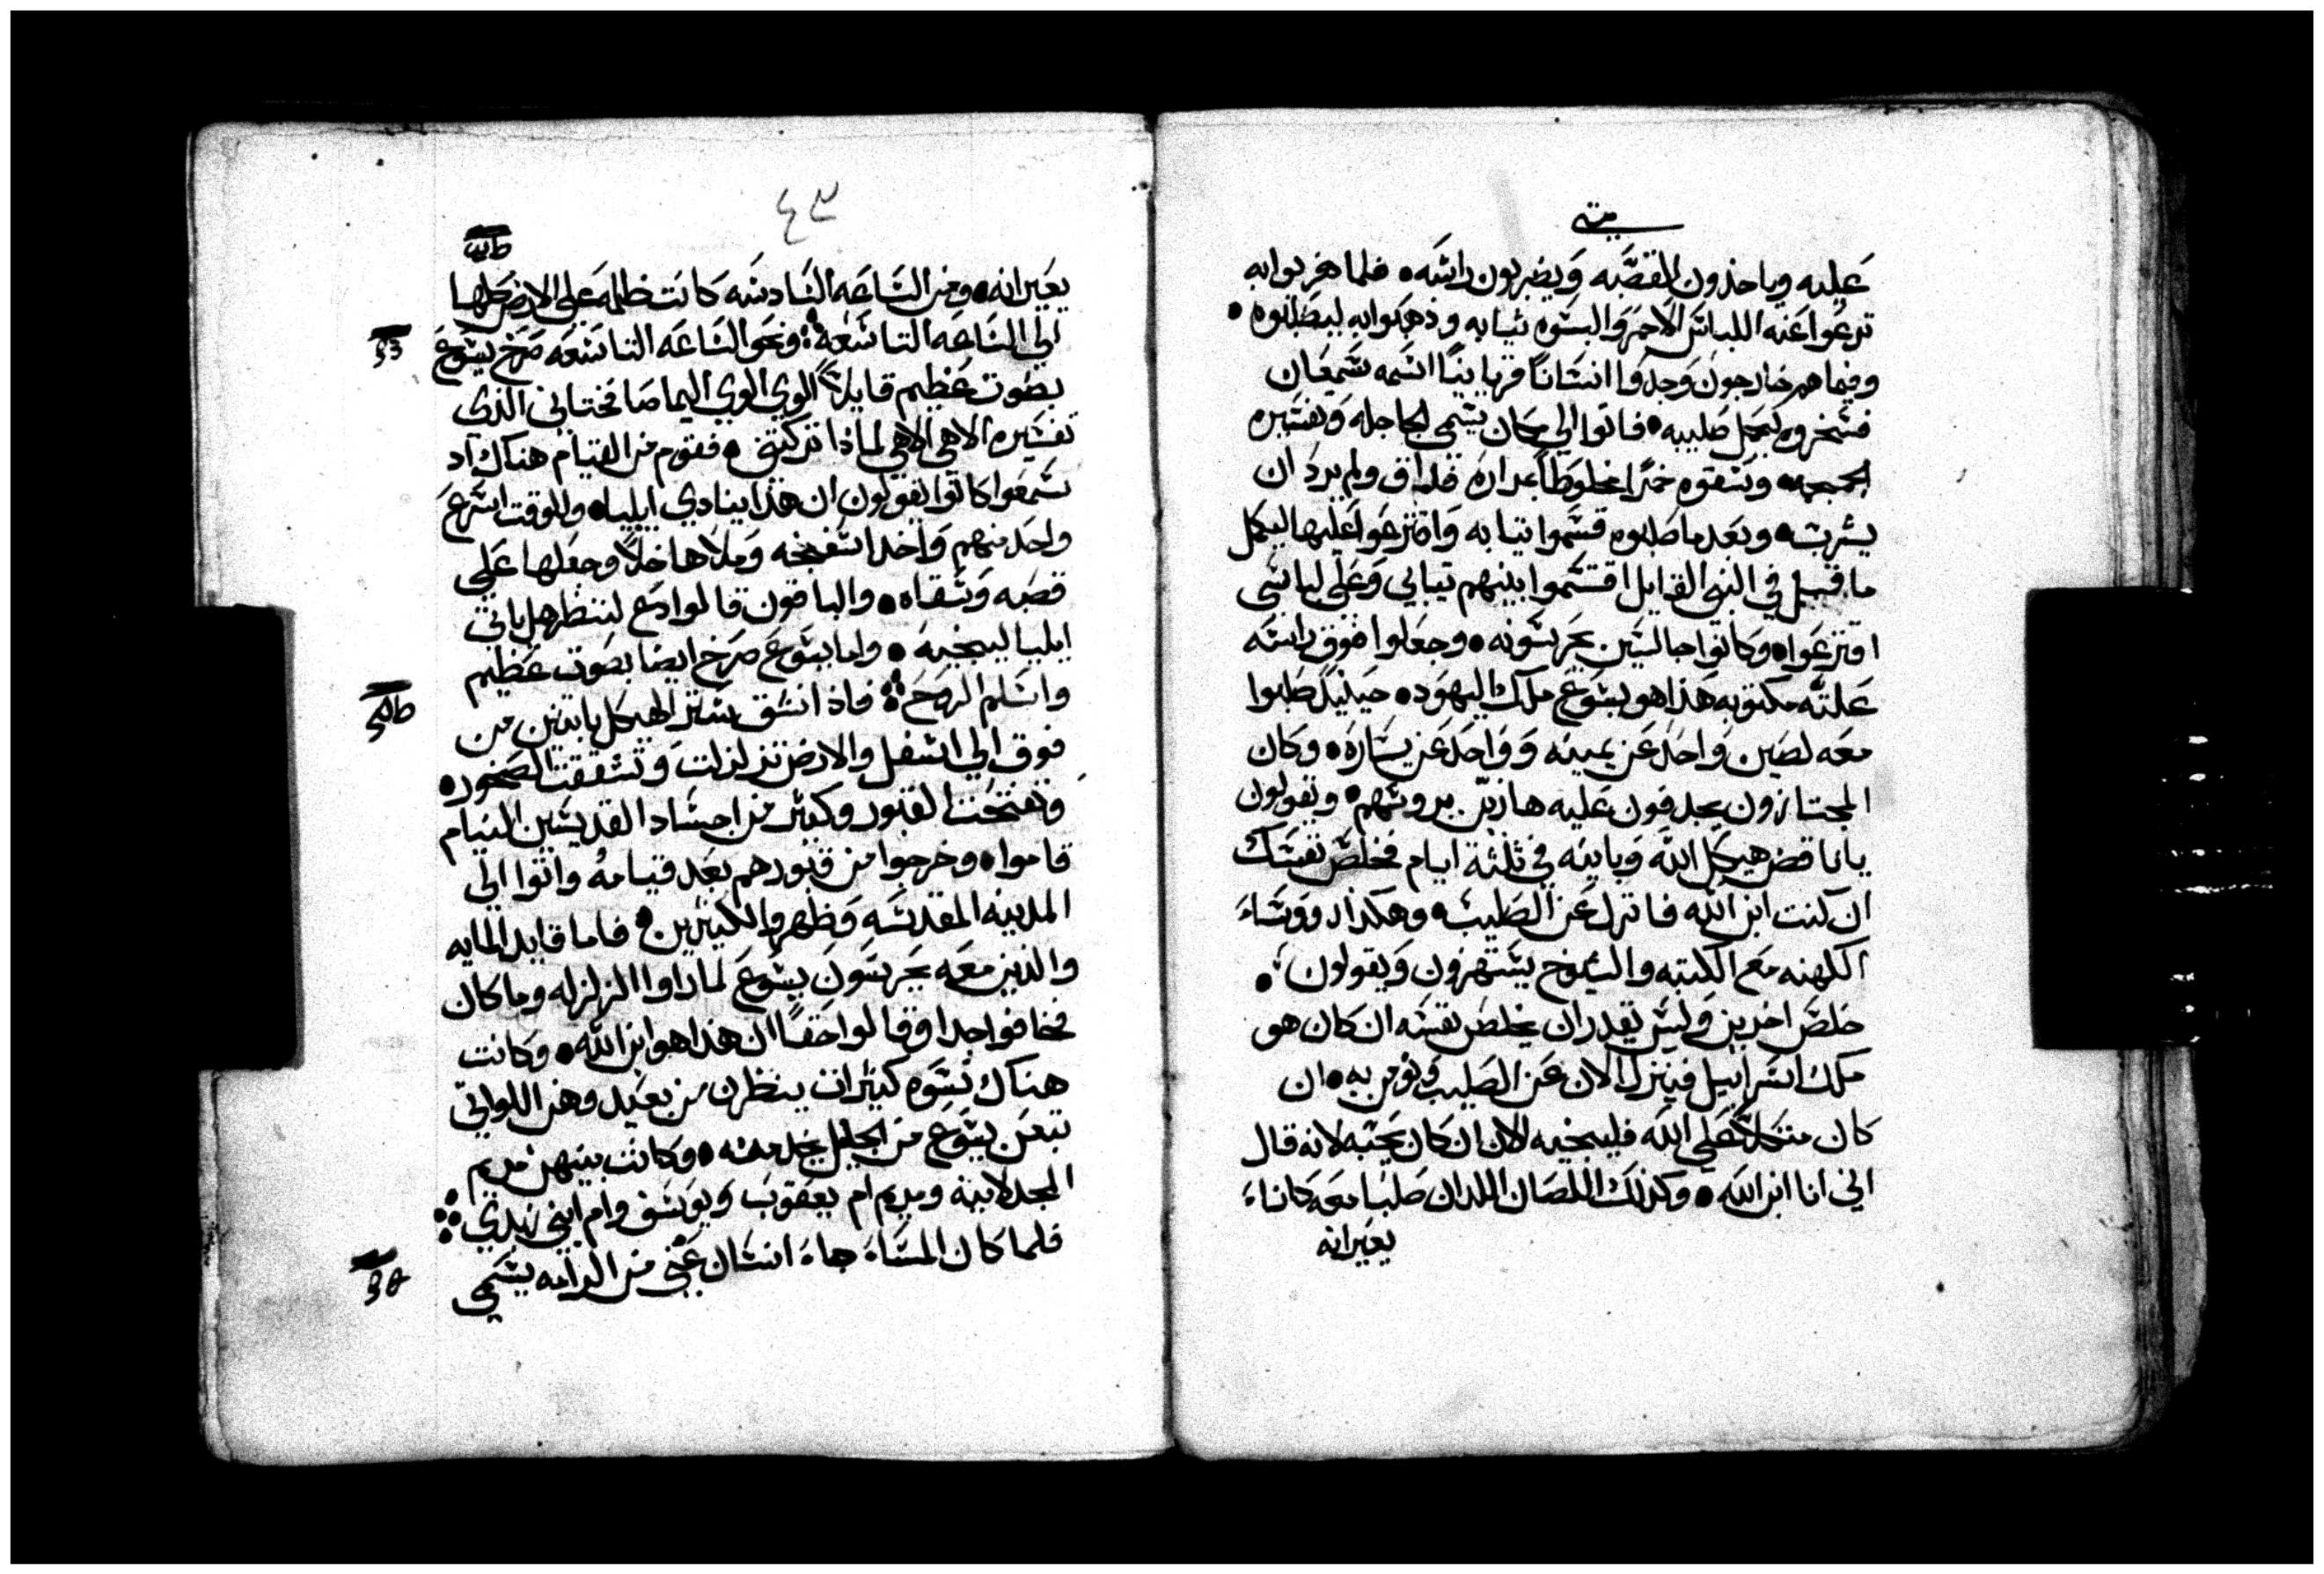 متى
عليه وياخذون القصبه ويضربون راسه • فلما هزيوا به
نزعوا عنه اللباس الاحمر والبسوه ثيابه وذهبوا به ليصلبوه •
وفيما هم خارجون وجدوا انسانًا قريانيًا اسمه سمعان
فسخروه ليحمل صليبه • فاتوا الي مكان يسمى الجاجله وتفسيره
الجمجمه • وسقوه خمرًا مخلوطًا بمراره فذاق ولم يرد ان
يشرب • وبعد ما صلبوه قسموا ثيابه واقترعوا عليها ليكمل
ما قيل في النبي القايل اقتسموا بينهم ثيابي وعلى لباسي
اقترعوا • وكانوا جالسين يحرسونه • وجعلوا فوق راسه
علته مكتوبه هذا هو يسوع ملك اليهود • حينيذ صلبوا
معه لصين واحد عن يمينه وواحد عن يساره • وكان
المجتازون يجدفون عليه هازين بروسهم • ويقولون
يا ناقض هيكل الله وبانيه في ثلثة ايام فخلص نفسك
ان كنت ابن الله فانزل عن الصليب • وهكذا رووساء
الكهنه مع الكتبه والشيوخ يستهزون ويقولون •
خلص اخرين وليس يقدر ان يخلص نفسه ان كان هو
ملك اسراييل فينزل الان عن الصليب ونومن به • ان
كان متكلا على الله فلينجيه الان ان كان يحبه لانه قال
اني انا ابن الله • وكذلك اللصان اللدان صلبا معه كانا
يعيرانه
٤٣
يعيرانه • ومن الساعه السادسه كانت ظلمه على الارض كلها
الي الساعه التاسعة ونحو الساعه التاسعه صرخ يسوع
بصوت عظيم قايلاً الوي الوي اليما صافختاني الذى
تفسيره الاهي الاهي لماذا تركتني • فقوم من القيام هناك اد
سمعوا كانوا يقولون ان هذا ينادي ايليا • وللوقت اسرع
واحد منهم واخد اسفنجه وملاها خلاً وجعلها على
قصبه وسقاه • والباقون قالوا دع لننظر هل ياتي
ايليا لينجيه • واما يسوع صرخ ايضا بصوت عظيم
واسلم الروح فاذ انشق ستر الهيكل باتنين من
فوق الي اسفل والارض تزلزلت وتشققت الصخور •
وتفتحت القبور وكثير من اجساد القديسين النيام
قاموا • وخرجوا من قبورهم بعد قيامه واتوا الي
المدينه المقدسه وظهروا لكثيرين • فاما قايد المايه
والذين معه يحرسون يسوع لما راوا الزلزله وما كان
فخافوا جدا وقالوا حقًا ان هذا هو ابن الله • وكانت
هناك نسوه كثيرات ينظرن من بعيد وهن اللواتي
تبعن يسوع من الجليل يخدمنه • وكانت بينهن مريم
المجدلانيه ومريم ام يعقوب ويوسف وام ابني زبدي
فلما كان المساء جاء انسان غني من الرامه يسمى